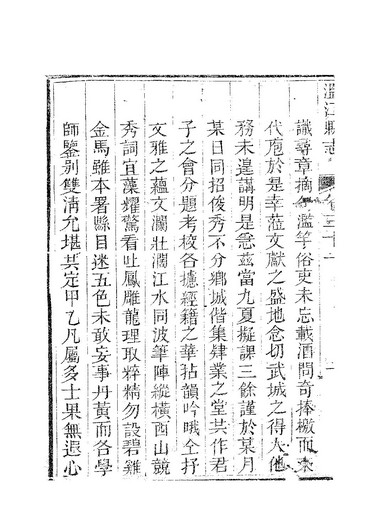 溫江縣志 卷三十一
識尋章摘句濫竽俗吏未忘載酒問奇捧檄而來
代庖於是幸蒞文獻之盛地念切武城之得人他
務未遑講明是急茲當九夏擬課三餘謹於某月
某日同招俊秀不分鄉城偕集肄業之堂共作君
子之會分題考校各攄經籍之華拈韻吟哦仝抒
文雅之蘊文瀾壯瀾江水同波筆陣縱橫酉山競
秀詞宜藻耀驚看吐鳳雕龍理取粹精勿設碧雞
金馬雖本署縣目迷五色未敢妄事丹黃而各學
師鑒別雙清允堪共定甲乙凡屬多士果無遐心